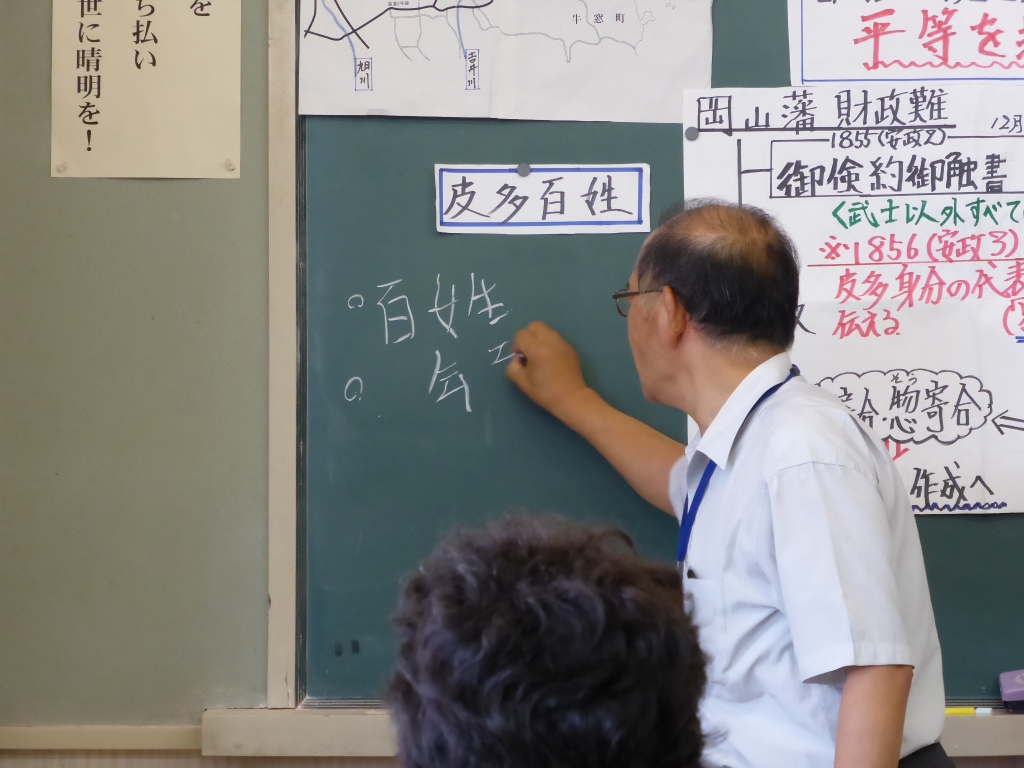 を
ち払い
世に晴明を！
牛窓町
旭川
吉井川
皮多百姓
百姓
平等を
岡山藩 財政難
12月
1855(安政2)
御倹約御触書
〈武士以外すべて
※1856(安政3)
皮多身分の代表
伝える
そう
惣寄合
作成へ